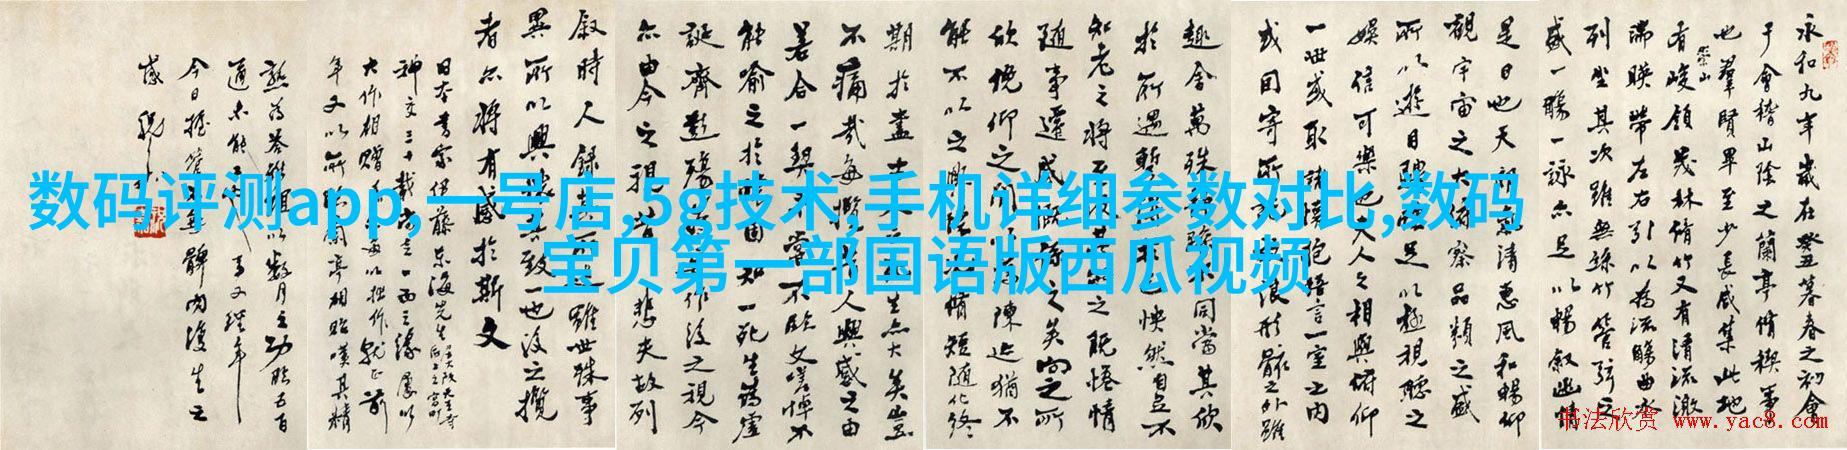 数码评测app,一号店,5g技术,手机详细参数对比,数码
宝贝第一部国语版西瓜视频
永和九年歲在癸丑暮春之初會
于會稽山陰之蘭亭脩禊事
也群賢畢至少長咸集此地
崇山
有峻領茂林脩竹又有清流激
湍暎帶左右引以為流觴曲水
列坐其次雖無絲竹管弦之
盛一觴一詠亦足以暢敘幽情
是日也天朗氣清惠風和暢仰
觀宇宙之大俯察品類之盛
所以遊目騁懷足以極視聽之
娛信可樂也夫人之相與俯仰
一世或取諸懷抱悟言一室之內
或因寄所託放浪形骸之外雖
趣舍萬殊靜躁不同當其欣
於所遇暫得於己怏然自足不
知老之將至及其所之既惓情
隨事遷感慨係之矣向之所
欣俛仰之間以為陳迹猶不
能不以之興懷況脩短隨化終
期於盡古人云死生亦大矣豈
不痛哉每攬昔人興感之由
若合一契未嘗不臨文嗟悼不
能喻之於懷固知一死生為虛
誕齊彭殤為妄作後之視今
亦由今之視昔悲夫故列
敘時人錄其所述雖世殊事
異所以興懷其致一也後之攬
者亦將有感於斯文
日本書家伊藤東海先生
神交三十載
大作相贈
年又以所 蘭亭相貽嘆其精
以數月之功
今日握管
书法欣赏 www.yac8.com